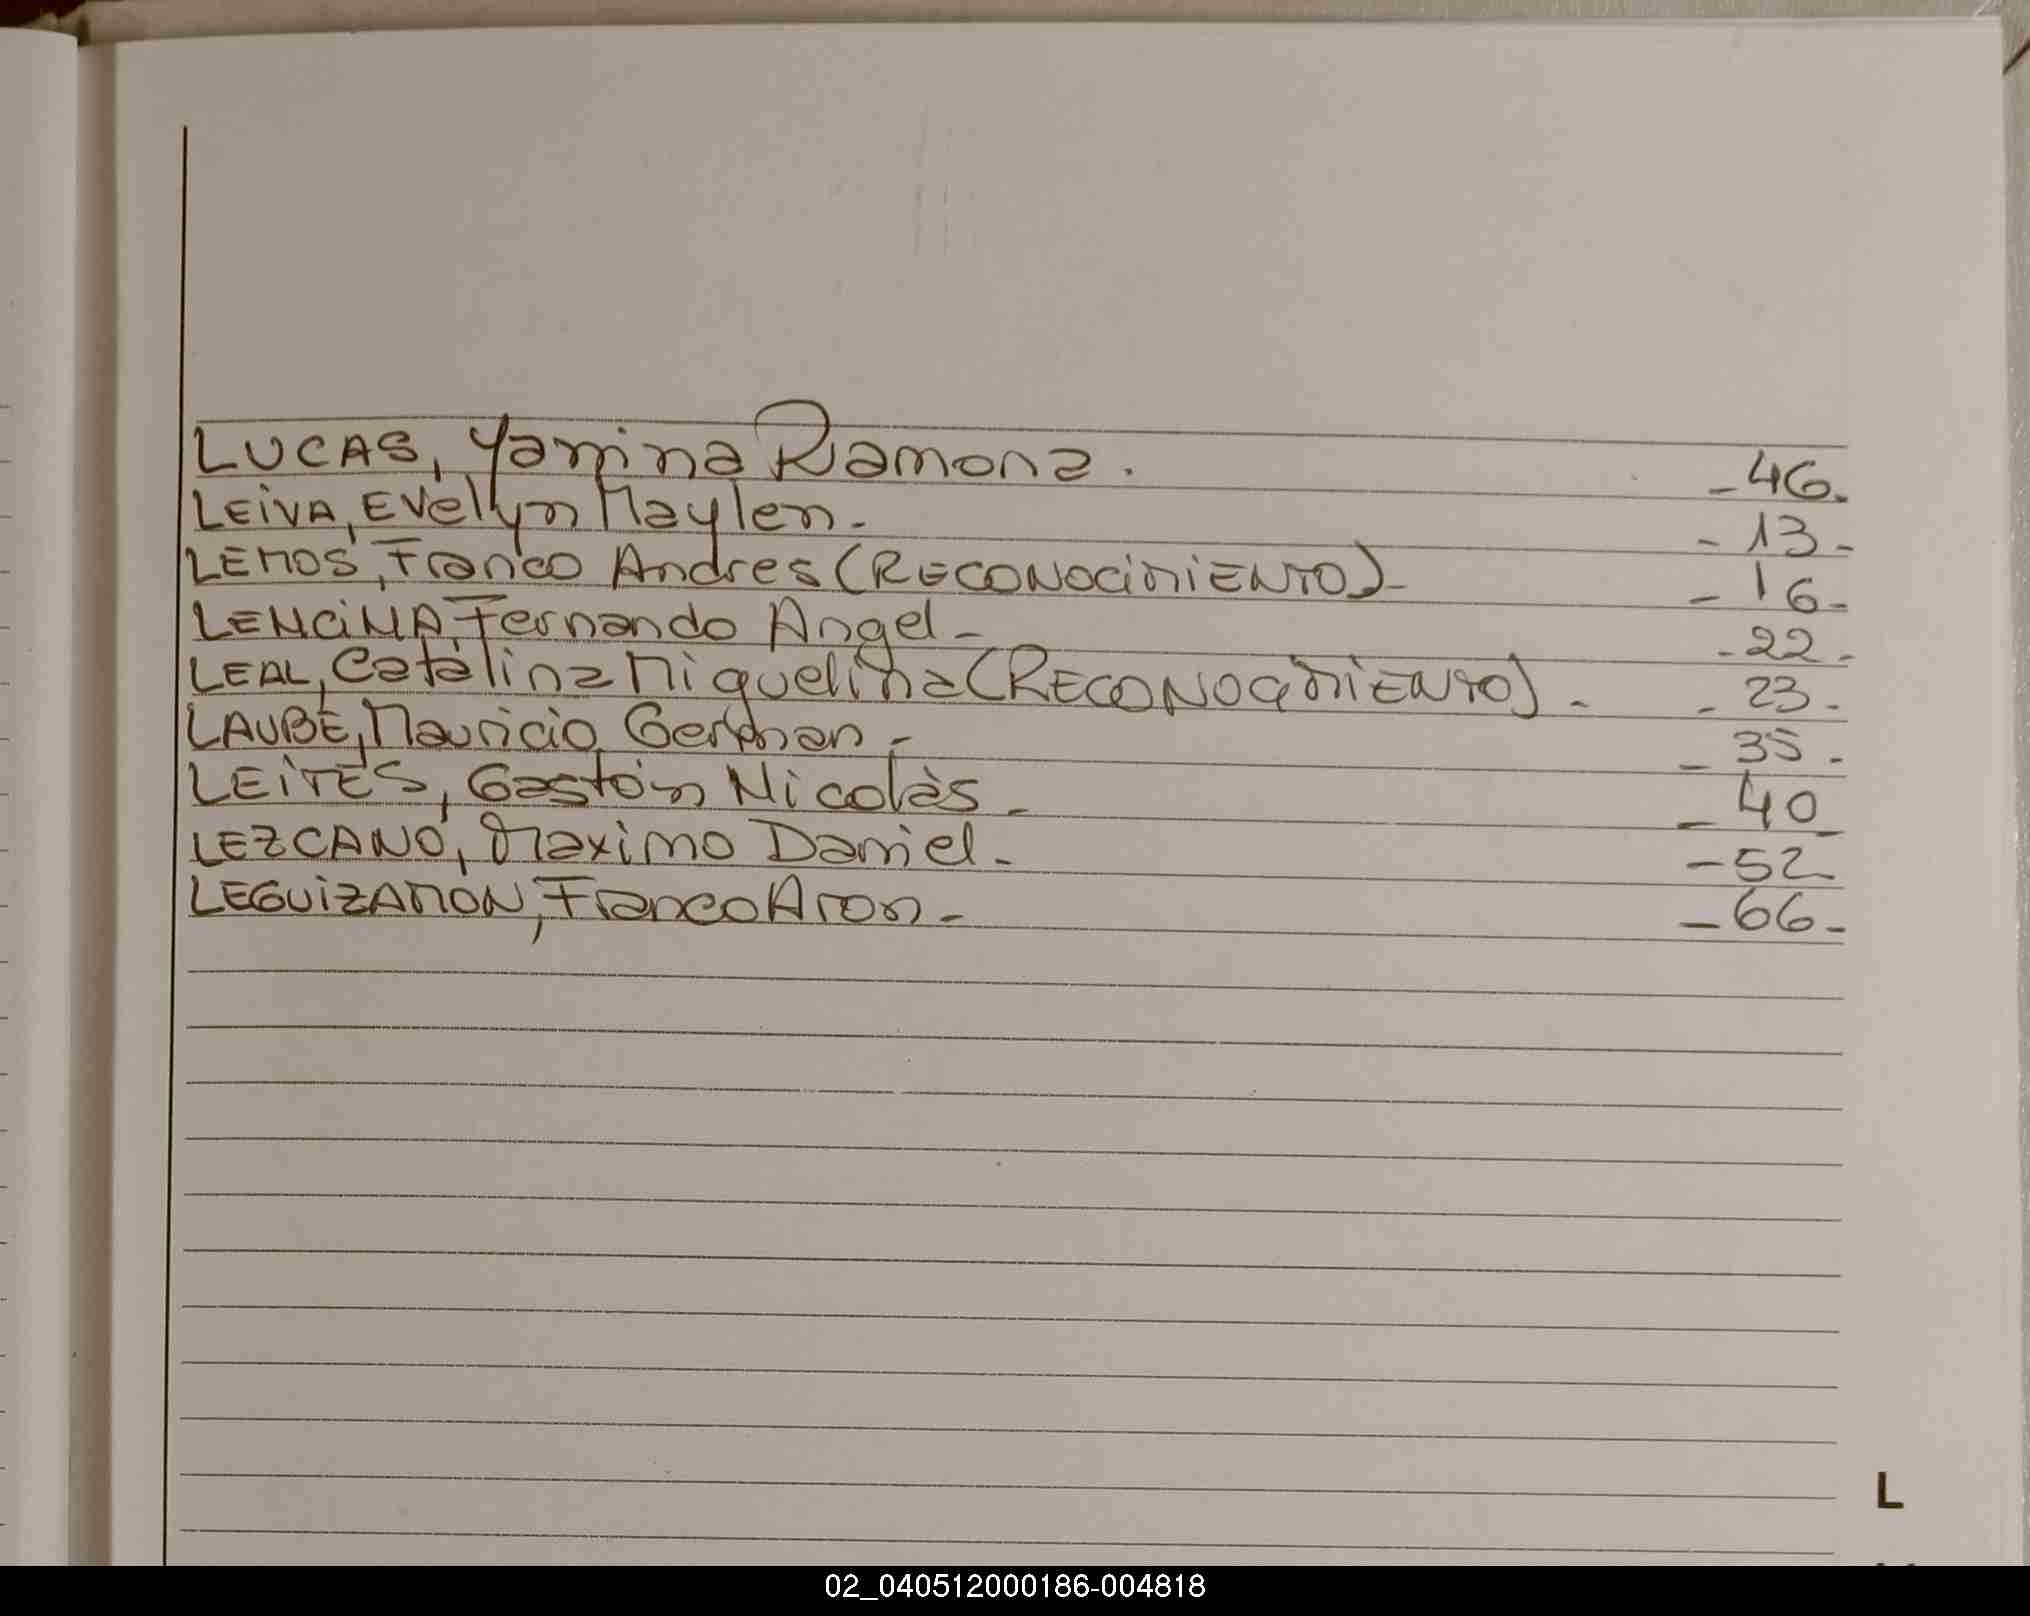 LUCAS, Yamina Ramona. - 46.
LEiVA, EVelyn Maylen. - 13 -
LEMOS, Franco Andres (RECONOCiMiENTO) - - 16 -
LENCiNA, Fernando Angel - - 22 -
LEAL, Catalina Miquelina (RECONOCiMiENTO). - - 23 -
LAUBE, Mauricio German - - 35 -
LEiTES, Gastón Nicolàs - - 40 -
LEZCANO, Maximo Daniel - - 52
LEGUiZAMON, Franco Aron - - 66 -
L
02_040512000186-004818